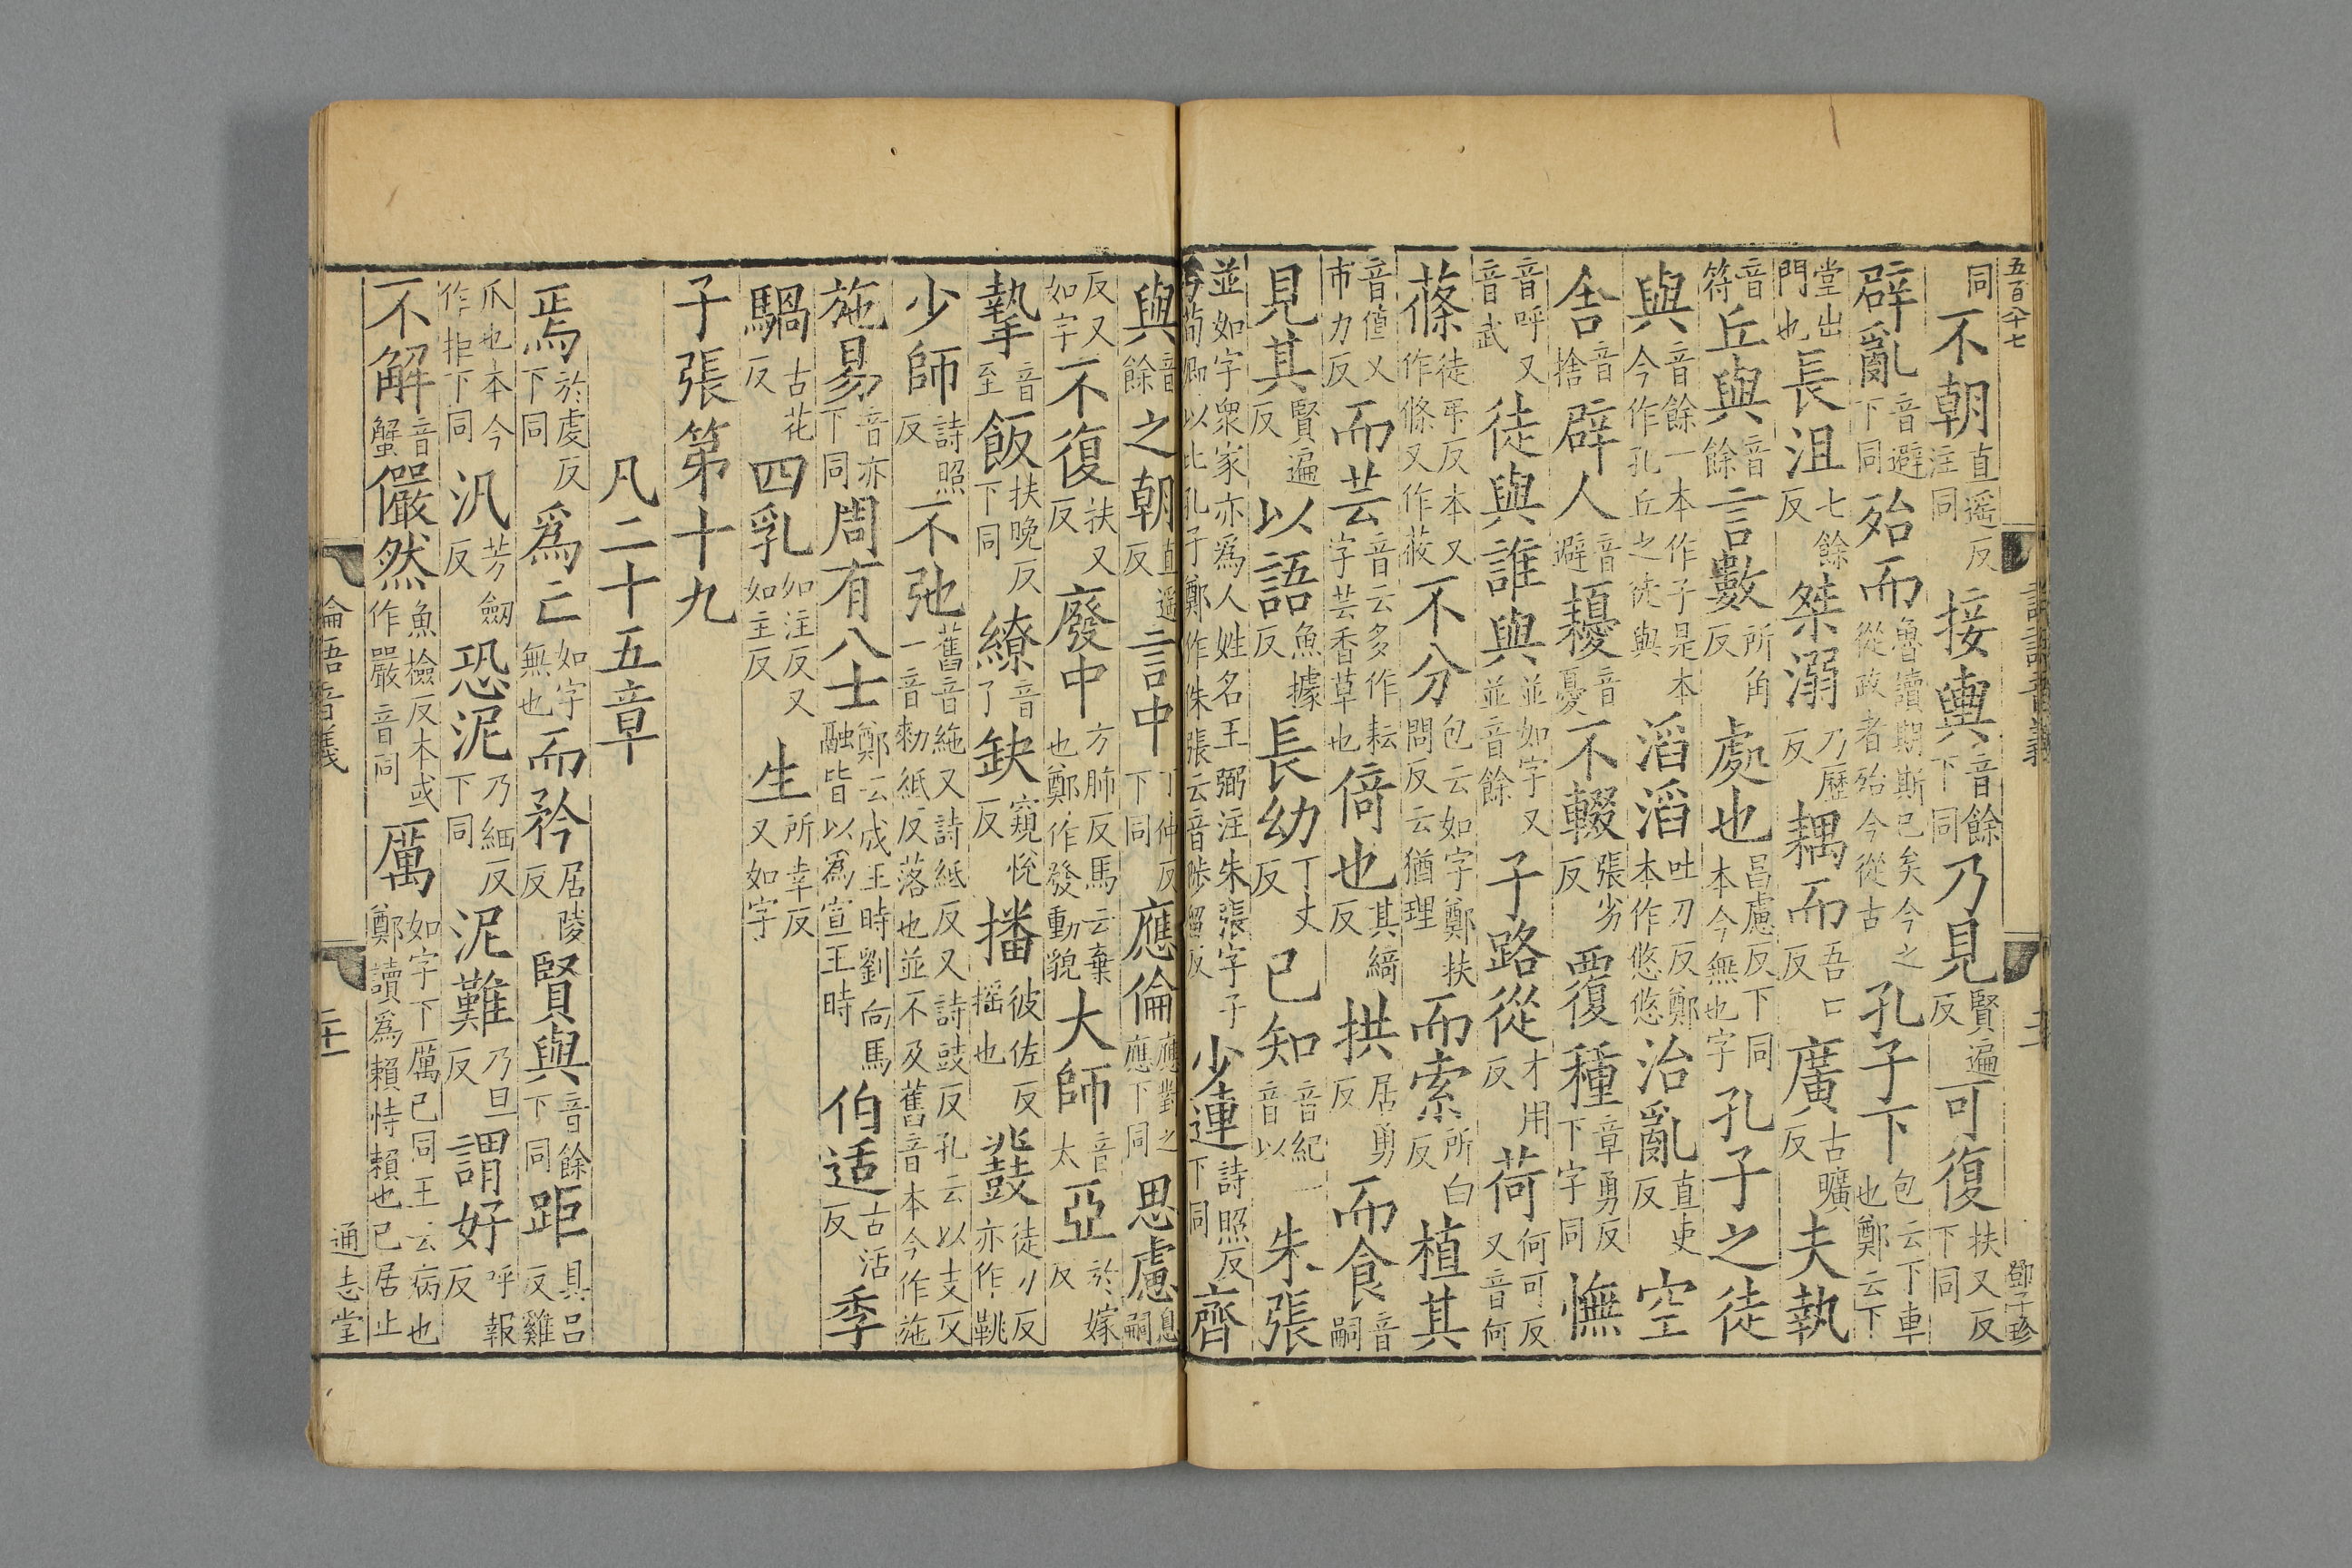 五百八十七
鄧子珍
同不朝直遥反注同接輿音餘下同乃見賢遍反可復扶又反下同
辟亂音避下同殆而魯讀期斯已矣今之從政者殆今從古孔子下包云下車也鄭云下
堂出門也長沮七餘反桀溺乃歷反耦而吾口反廣古曠反夫執
音符丘與音餘言數所角反處也昌慮反下同本今無也字孔子之徒
與音餘一本作子是本今作孔丘之徒與滔滔吐刀反鄭本作悠悠治亂直吏反空
舍音捨辟人音避擾音憂不輟張劣反覆種章勇反下字同憮
音呼又音武徒與誰與並如字又並音餘子路從才用反荷何可反又音何
蓧徒弔反本又作條又作莜不分包云如字鄭扶問反云猶理而索所白反植其
音値又市力反而芸音云多作耘字芸香草也倚也其綺反拱居勇反而食音嗣
見其賢遍反以語魚據反長幼丁丈反已知音紀一音以朱張
並如字衆家亦爲人姓名王弼注朱張字子弓荀卿以比孔子鄭作侏張云音陟留反少連詩照反下同齊
與音餘之朝直遥反言中丁仲反下同應倫應對之應下同思慮息嗣
反又如字不復扶又反廢中方肺反馬云棄也鄭作發動貌大師音太亞於嫁反
摯音至飯扶晚反下同繚音了缺窺悅反播彼佐反摇也鼗徒刀反亦作鞉
少師詩照反不弛舊音絁又詩紙反又詩豉反孔云以支反一音勑紙反落也並不及舊音本今作施
施易音亦下同周有八士鄭云成王時劉向馬融皆以爲宣王時伯适古活反季
騧古花反四乳如注反又如主反生所幸反又如字
子張第十九
凡二十五章
焉於虔反下同爲亡如字無也而矜居陵反賢與音餘下同距具呂反雞
爪也本今作拒下同汎芳劒反恐泥乃細反下同泥難乃旦反謂好呼報反
不解音蟹儼然魚檢反本或作嚴音同厲如字下厲已同王云病也鄭讀爲賴恃賴也已居止
論語音義
通志堂